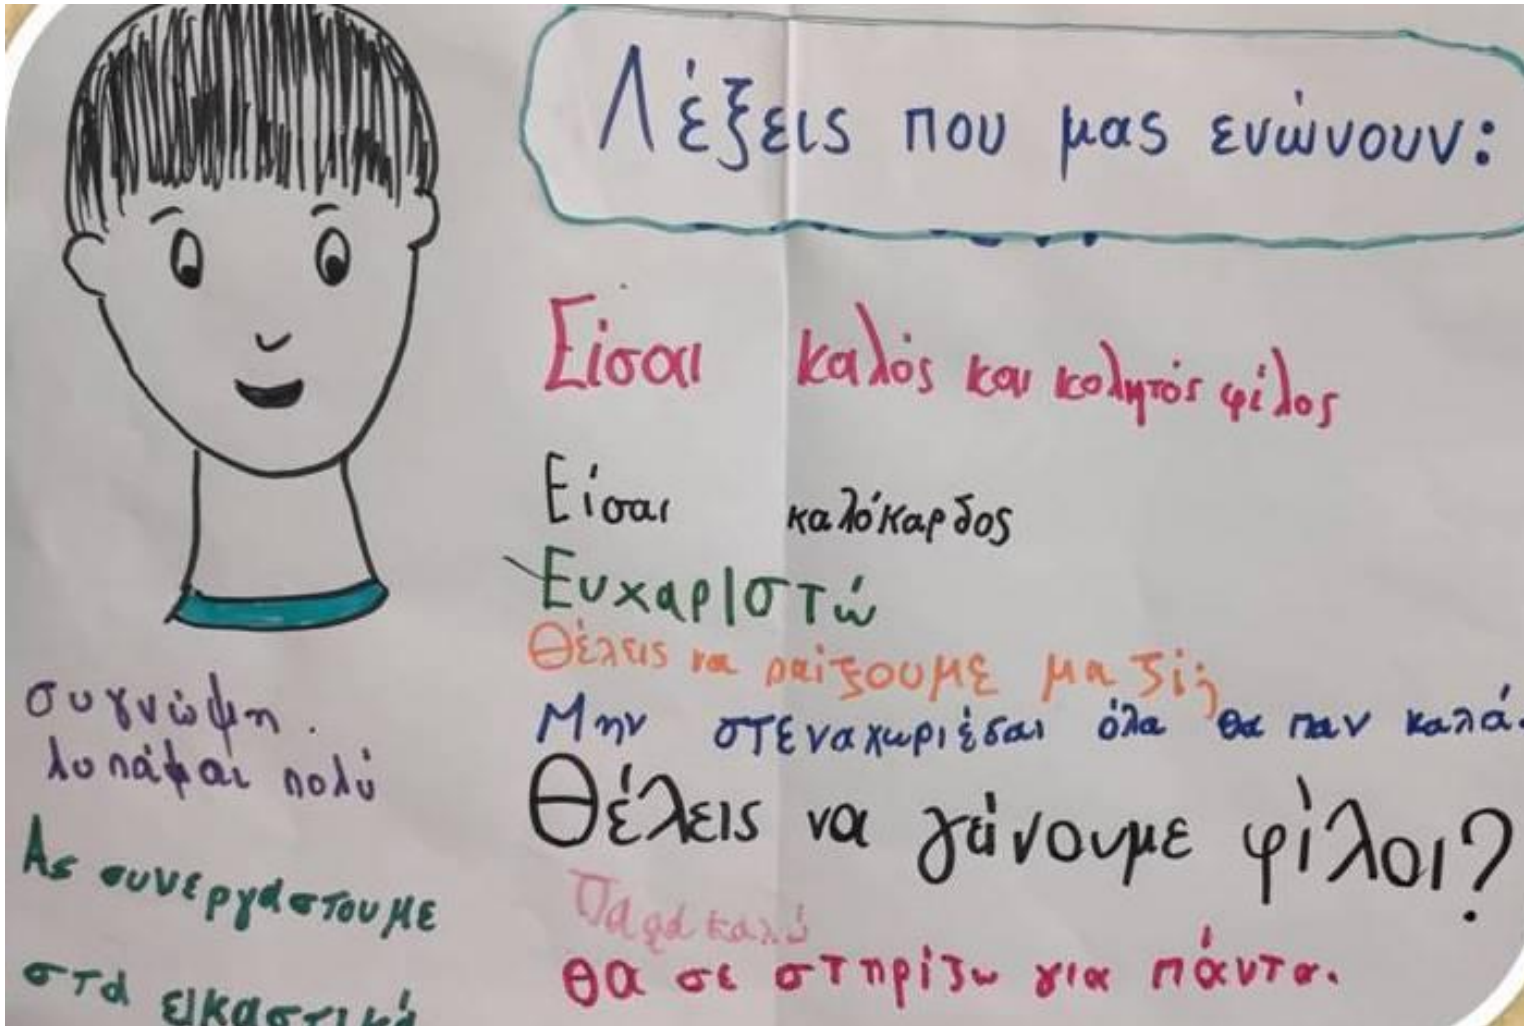 Λέξεις που μας ενώνουν:
Είσαι καλός και κολητός φίλος
Είσαι καλόκαρδος
Ευχαριστώ
Θέλεις να παίξουμε μαζί;
Μην στεναχωριέσαι όλα θα παν καλά.
Θέλεις να γείνουμε φίλοι?
Παρακαλώ
θα σε στηρίζω για πάντα.
συγνώμη.
λυπάμαι πολύ
Ας συνεργαστουμε
στα εικαστικά